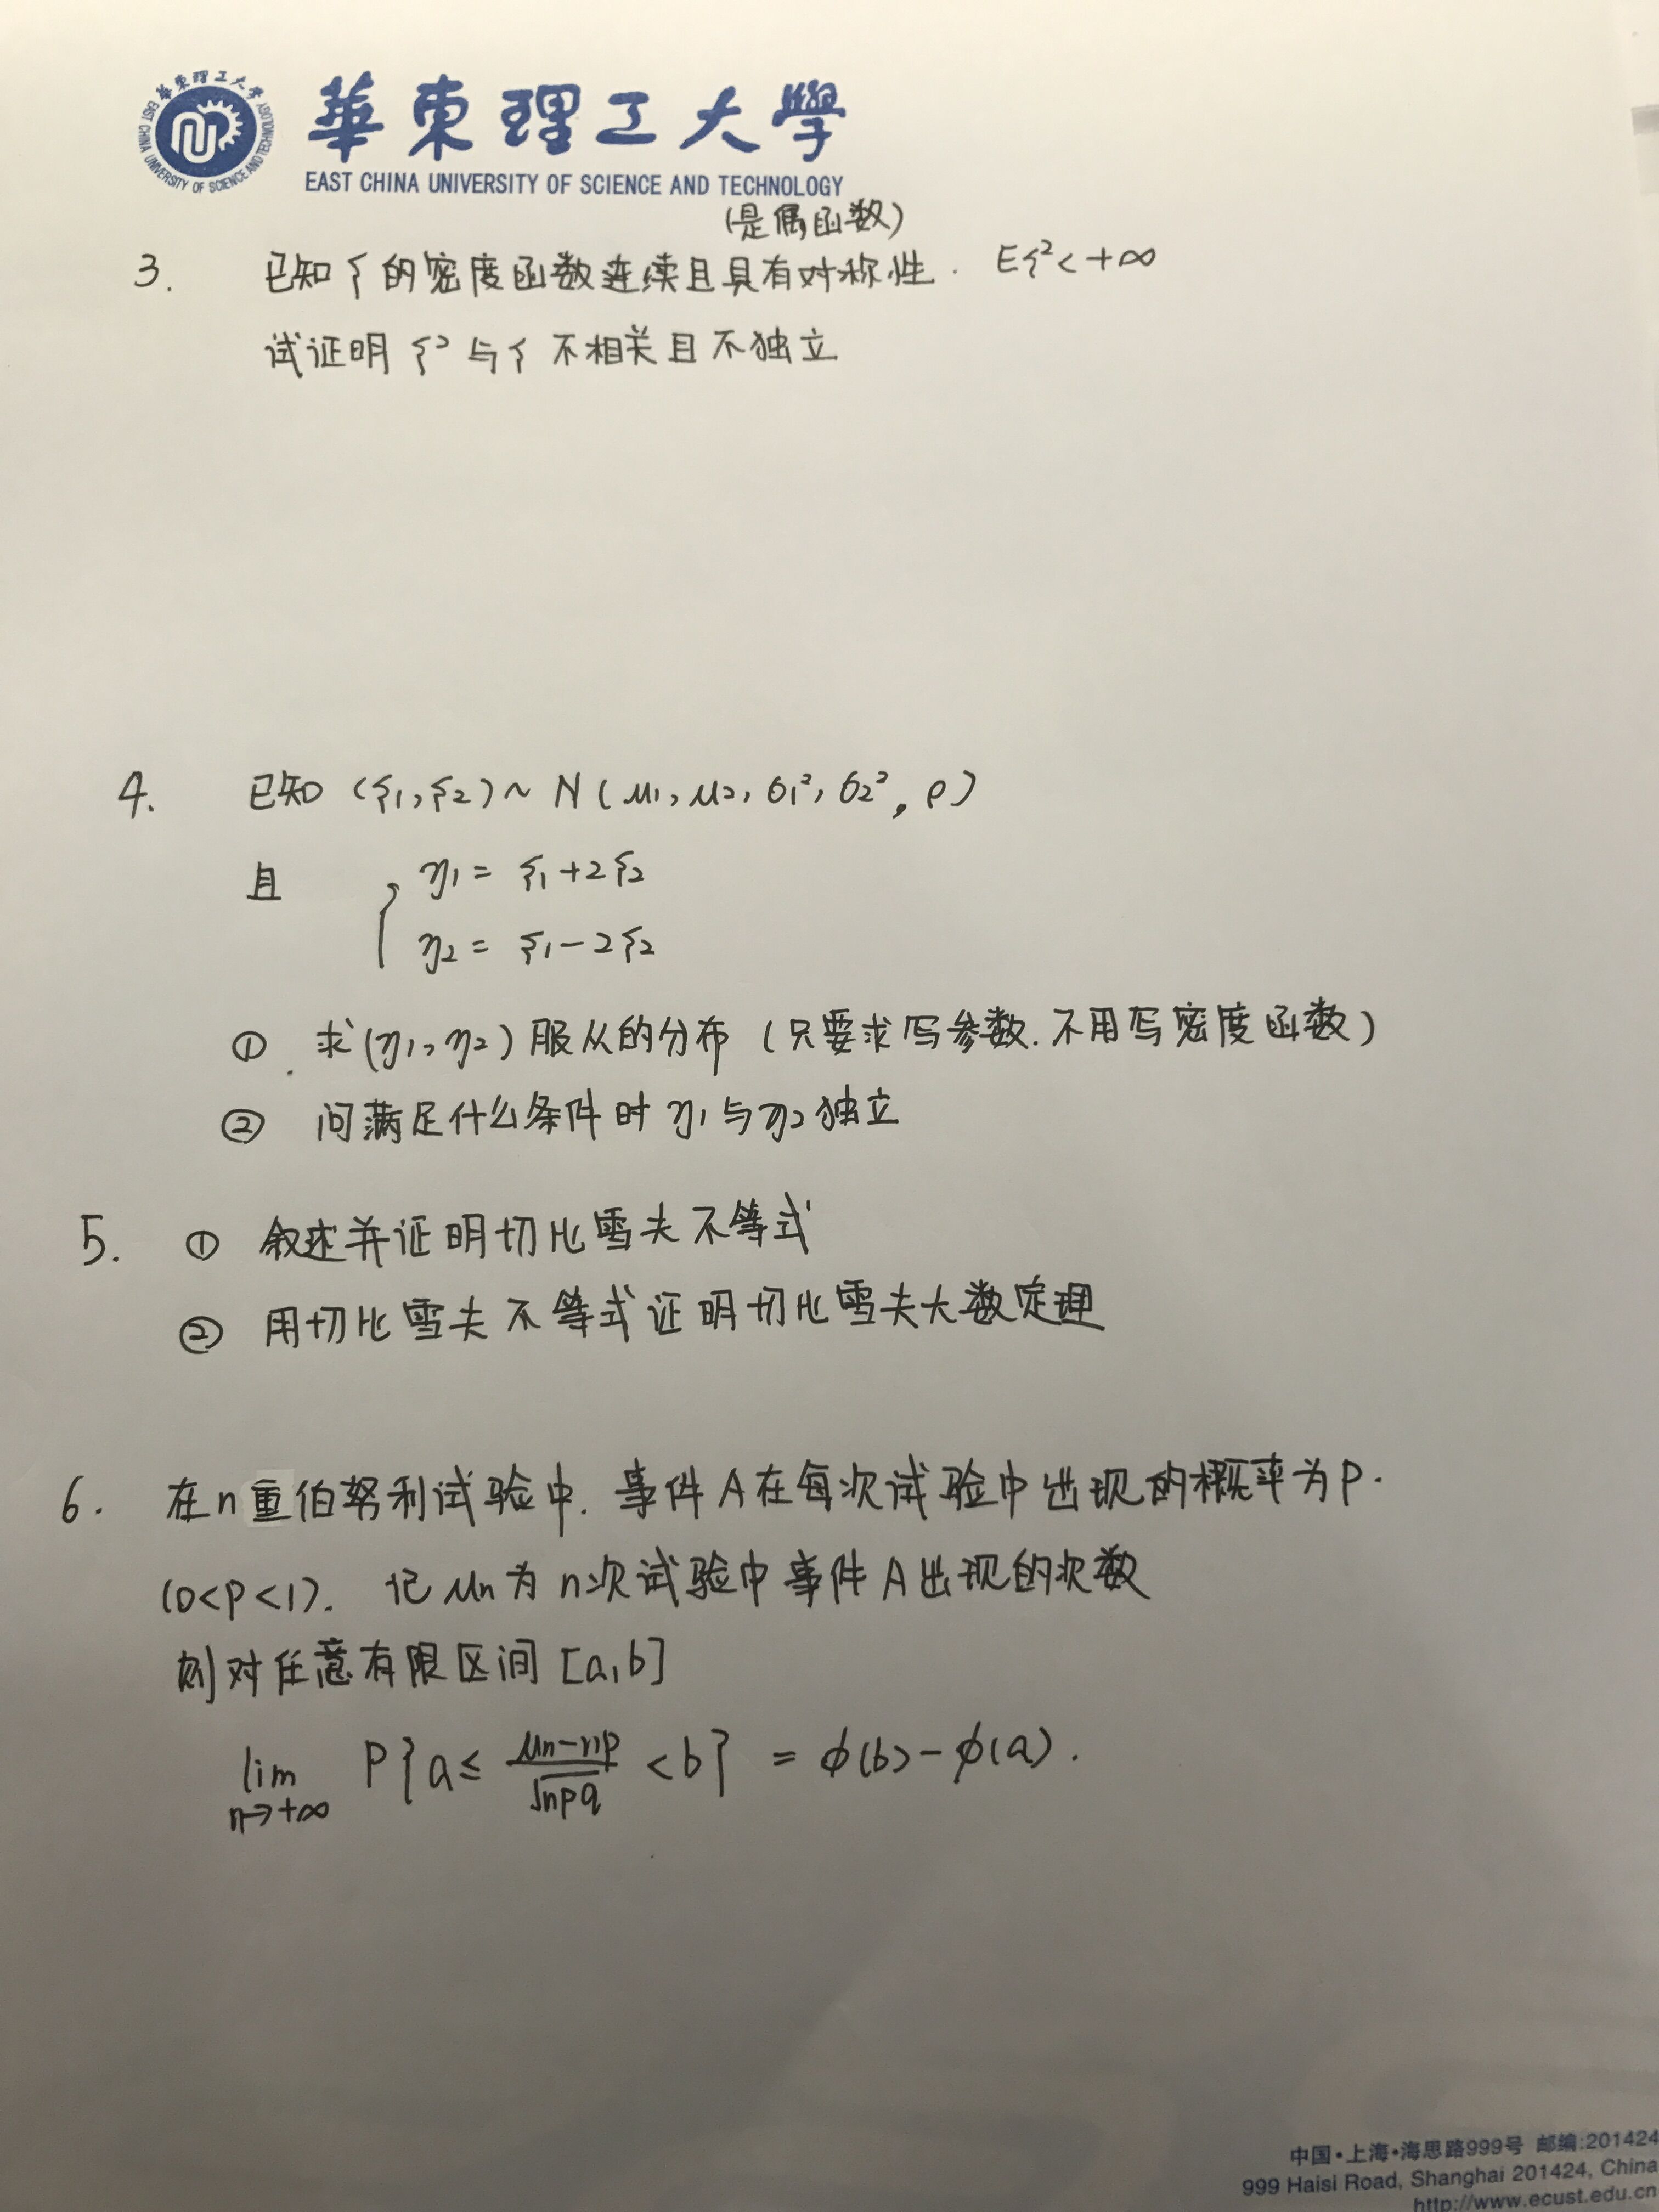 華東理工大學
EAST CHINA UNIVERSITY OF SCIENCE AND TECHNOLOGY
(是偶函数)
3. 已知ξ的密度函数连续且具有对称性. Eξ²<+∞
试证明ξ²与ξ不相关且不独立
4. 已知 (ξ1,ξ2)~N(μ1,μ2,σ1²,σ2²,ρ)
且 { η1=ξ1+2ξ2
η2=ξ1-2ξ2
① 求(η1,η2)服从的分布(只要求写参数.不用写密度函数)
② 问满足什么条件时η1与η2独立
5. ① 叙述并证明切比雪夫不等式
② 用切比雪夫不等式证明切比雪夫大数定理
6. 在n重伯努利试验中.事件A在每次试验中出现的概率为P.
(0<P<1). 记μn为n次试验中事件A出现的次数
则对任意有限区间[a,b]
lim n→+∞ P{a≤(μn-np)/√npq<b}=ϕ(b)-ϕ(a).
中国·上海·海思路999号 邮编:201424
999 Haisi Road, Shanghai 201424, China
http://www.ecust.edu.cn